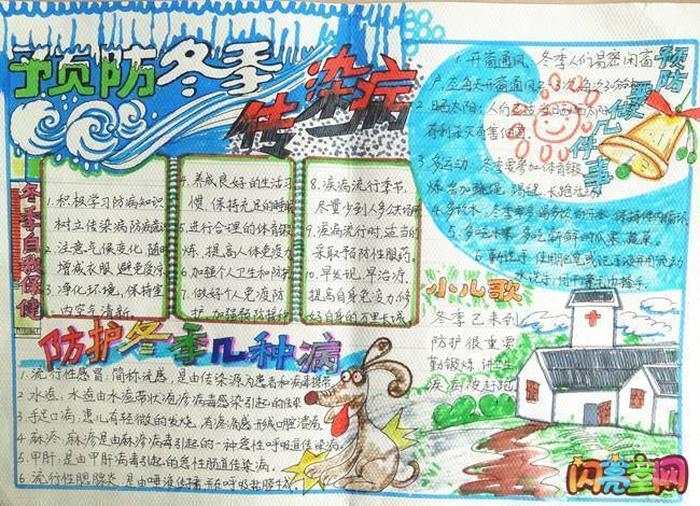 预防冬季
传染病
冬季自我保健
1.积极学习防病知识
树立传染病防病意识
2.注意气候变化,随时
增减衣服,避免受凉
3.净化环境,保持室
内空气清新。
4.养成良好的生活习
惯,保持充足的睡眠
5.进行合理的体育锻
炼,提高人体免疫力
6.加强个人卫生和防护
7.做好个人免疫防
护,加强预防接种
8.疾病流行季节,
尽量少到人多公共场所
9.疾病流行时,适当的
采取预防性服药。
10.早发现,早治疗,
提高自身免疫力,修
好自身的万里长城
预防
要做几件事
1.开窗通风,冬季人们易密闭窗
户,应每天开窗通风2~3次,每次30分钟
2.晒太阳:人们应适当晒晒太阳
有利杀灭有害细菌
3.多运动,冬季要参加体育锻
炼,参加跳绳、踢毽、长跑活动
4.多饮水,冬季要多喝
5.多吃水果,多吃新鲜的瓜果、蔬菜。
6.勤洗手
小儿歌
冬季已来到
防护很重要
勤锻炼 讲卫生
疾病没赶跑
防护冬季几种病
1.流行性感冒:简称流感,是由传染源为患者和病毒携带
2.水痘:水痘由水痘带状疱疹病毒感染引起的传染
3.手足口病:患儿有轻微的发烧,有疼痛感形成口腔溃疡。
4.麻疹:麻疹是由麻疹病毒引起的一种急性呼吸道传染病。
5.甲肝:是由甲肝病毒引起的急性肠道传染病。
6.流行性腮腺炎:是由唾液传播并在呼吸
闪亮童网